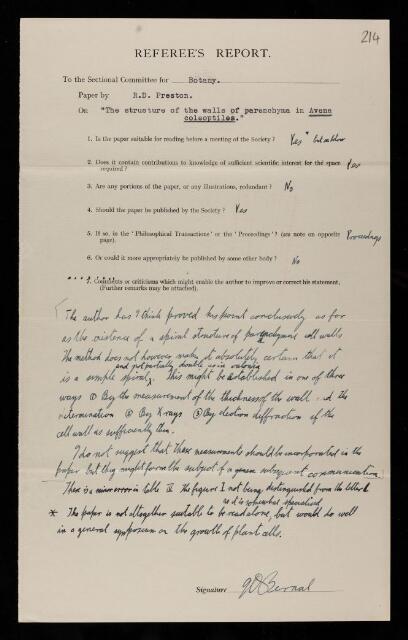 214
REFEREE'S REPORT.
To the Sectional Committee for Botany.
Paper by R.D. Preston.
On "The structure of the walls of parenchyma in Avena
coleoptiles."
1. Is the paper suitable for reading before a meeting of the Society? Yes*
2. Does it contain contributions to knowledge of sufficient scientific interest for the space
required? Yes
3. Are any portions of the paper, or any illustrations, redundant? No
4. Should the paper be published by the Society? Yes
5. If so, in the 'Philosophical Transactions' or the 'Proceedings'? (see note on opposite
page). Proceedings
6. Or could it more appropriately be published by some other body? No
7. Comments or criticisms which might enable the author to improve or correct his statement,
(Further remarks may be attached).
The author has I think proved his point conclusively as far
as the existence of a spiral structure of parenchyma cell walls
The method does not however make it absolutely certain that it
and not partially double as in valonia
is a simple spiral. This might be established in one of three
ways ① By the measurement of the thickness of the wall and the
determination ② By X rays ③ By electron diffraction if the
cell wall is sufficiently thin.
I do not suggest that these measurements should be incorporated in the
paper but they might form the subject of a subsequent communication
There is a minor error in table II the figure 1 not being distinguished from the letter l
as it is somewhat specialised
* The paper is not altogether suitable to be read alone, but would do well
in a general symposium on the growth of plant cells.
Signature J D Bernal